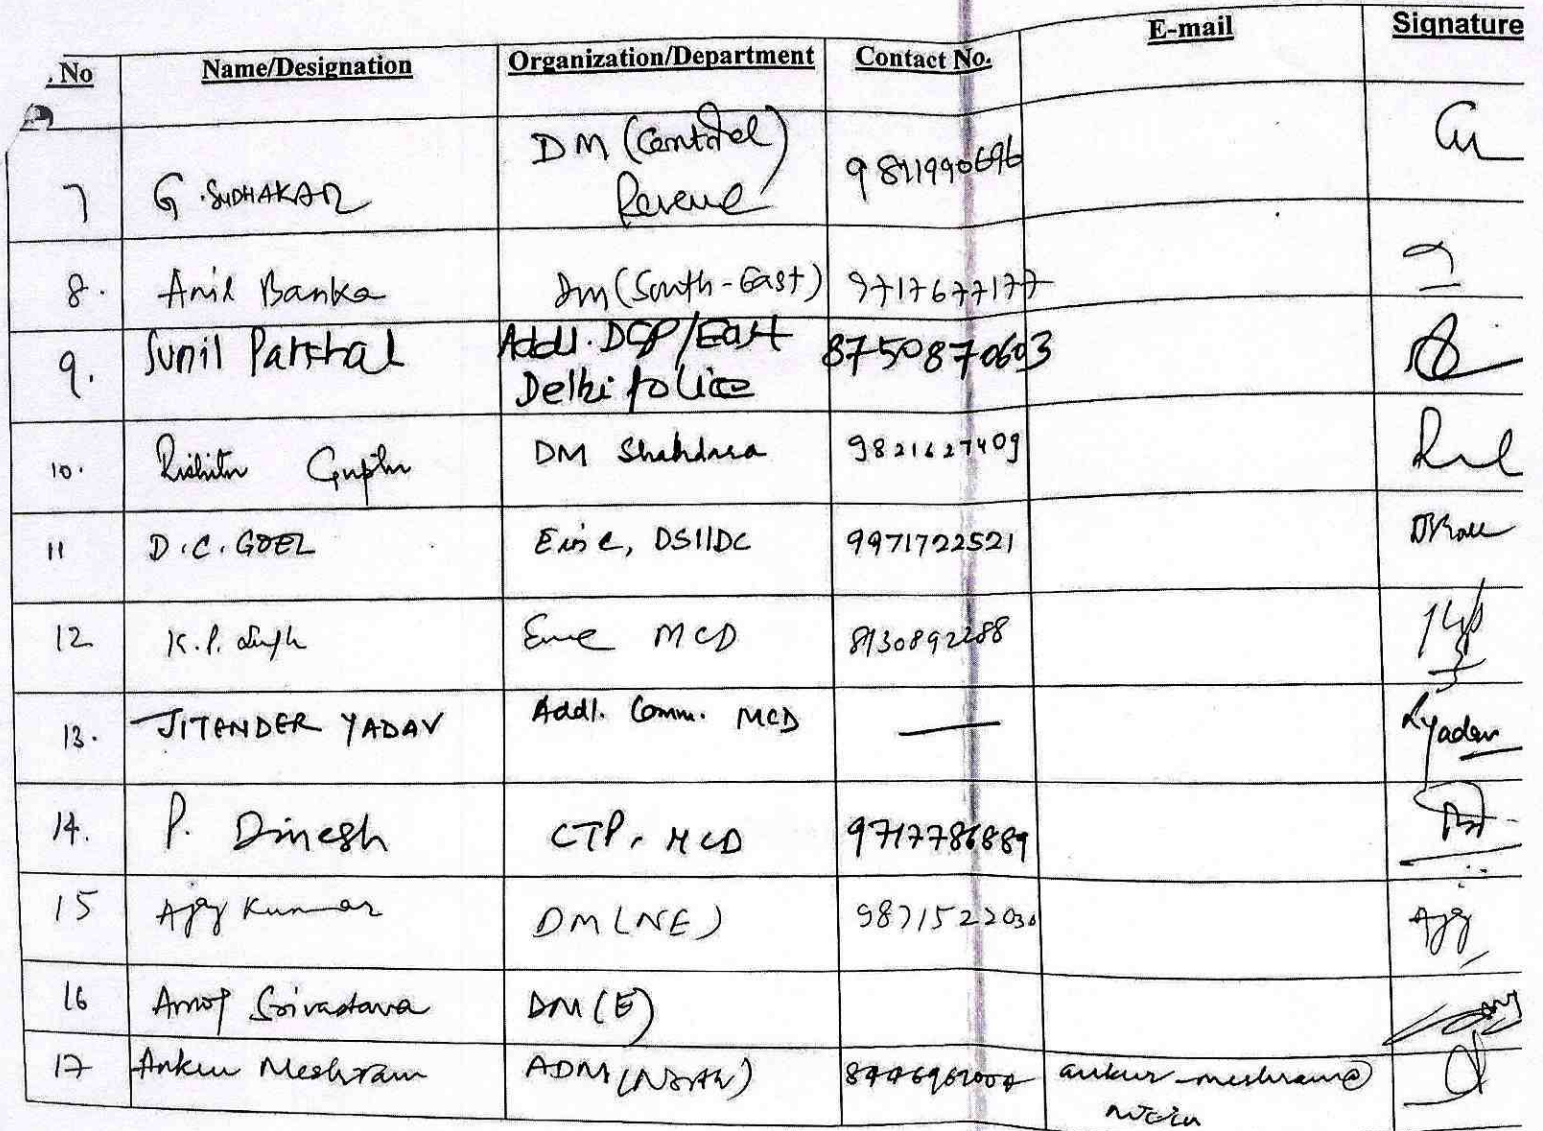 . No Name/Designation Organization/Department Contact No. E-mail Signature
7 G. SUDHAKAR DM (Central) Revenue 9811990696
8. Anil Banka DM (South-East) 9717677177
9. Sunil Patshal Addl. DCP/East Delhi police 8750870603
10. Gupta DM Shahdara 9821627409
11 D.C. GOEL DSIIDC 9971722521
12 K.P. Singh MCD 8130892288
13. JITENDER YADAV Addl. Comm. MCD — Yadav
14. P. Dinesh CTP, MCD 9717786889
15 Ajay Kumar DM (NE) 9871522030 Ajay
16 Srivastava DM (E)
17 Ankur Meshram ADM ankur-meshram@